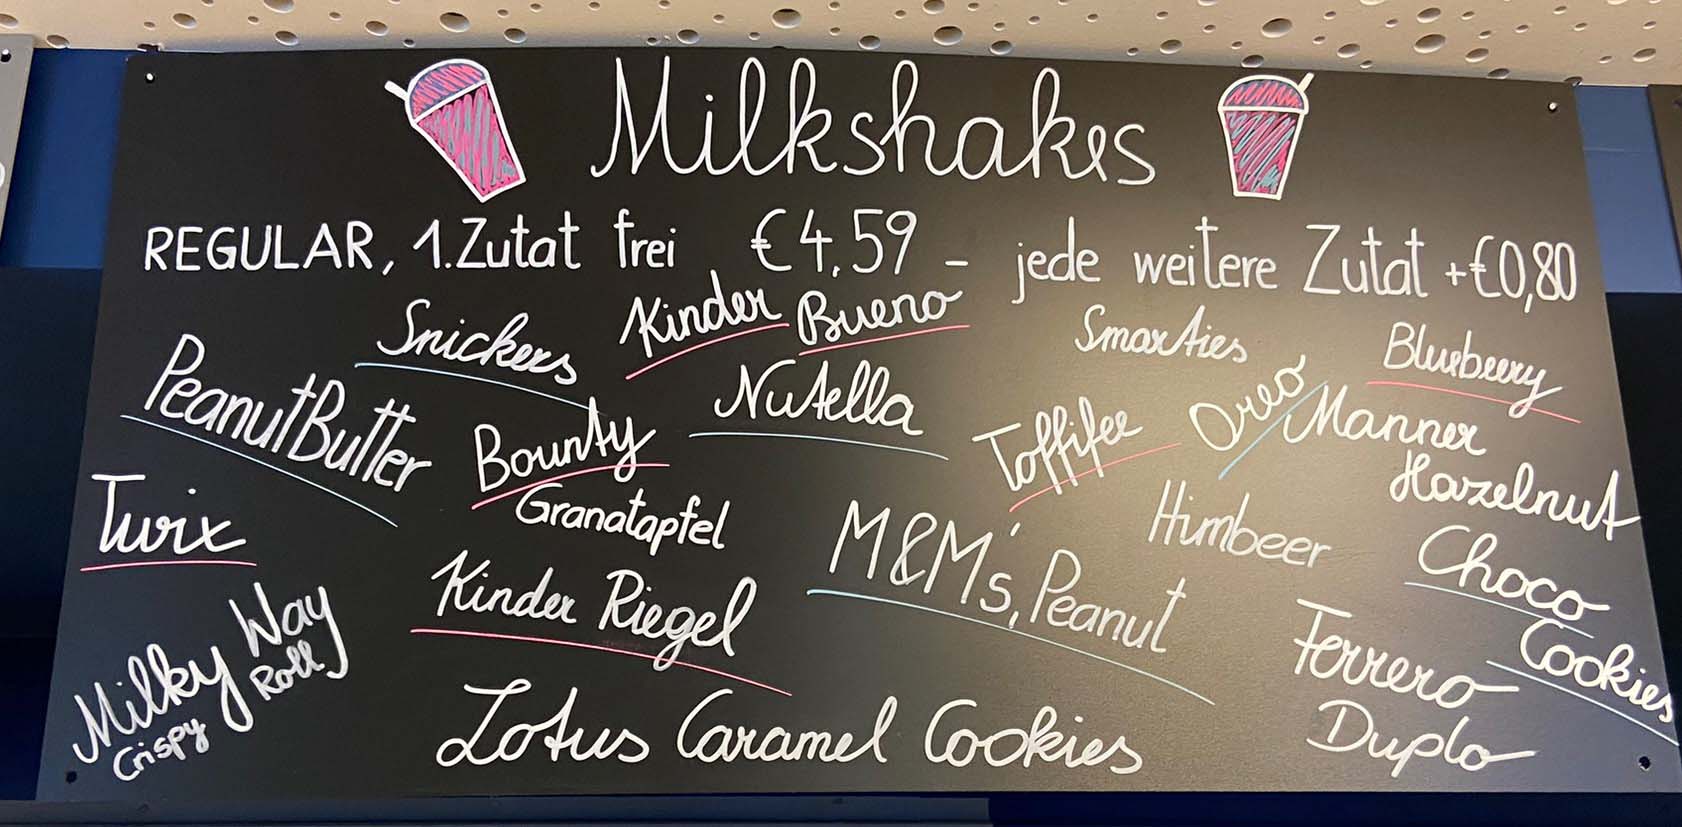 Milkshakes
REGULAR, 1. Zutat frei €4,59 - jede weitere Zutat +€0,80
Snickers
Kinder Bueno
Smarties
Blueberry
PeanutButter
Bounty
Nutella
Toffifee
Oreo
Manner
Hazelnut
Twix
Granatapfel
M&M's, Peanut
Himbeer
Choco
Cookies
Milky Way
Crispy Roll
Kinder Riegel
Ferrero
Duplo
Lotus Caramel Cookies